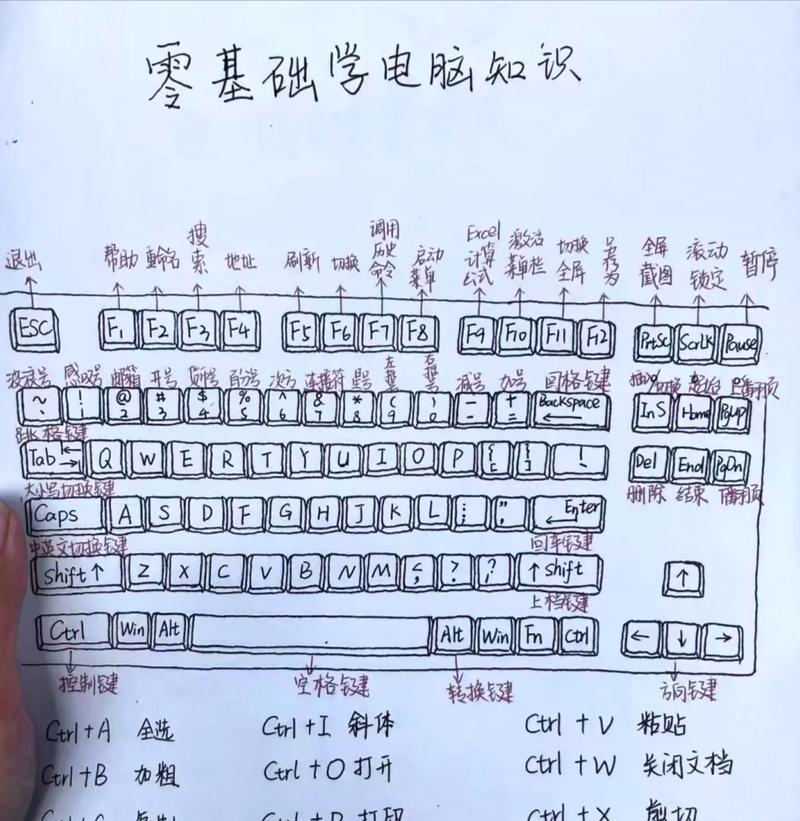 零基础学电脑知识
退出 帮助 重命名 搜索 地址 刷新 切换 调用历史命令 启动菜单 Excel计算公式 激活菜单栏 切换全屏 另存为 全屏截图 滚动锁定 暂停
ESC F1 F2 F3 F4 F5 F6 F7 F8 F9 F10 F11 F12 PrtSc ScrLK Pause
波浪号 感叹号 邮箱 井号 货币号 百分号 次方 连接符 星号 左括号 右括号 减号 加号 回格键
~ ` ! 1 @ 2 # 3 $ 4 % 5 ^ 6 & 7 * 8 ( 9 ) 0 - - + = Backspace InS Home PgUp
Tab Q W E R T Y U I O P { [ } ] Del End PgDn
大小写切换键 删除 结束 下翻页
Caps A S D F G H J K L Enter
中英文切换键 回车键
Shift ↑ Z X C V B N M ↑ Shift ↑
上档键
Ctrl Win Alt Alt Win Fn Ctrl ← ↓ →
控制键 空格键 转换键 方向键
Ctrl+A 全选 Ctrl+I 斜体 Ctrl+V 粘贴
Ctrl+B 加粗 Ctrl+O 打开 Ctrl+W 关闭文档
Ctrl+X 剪切